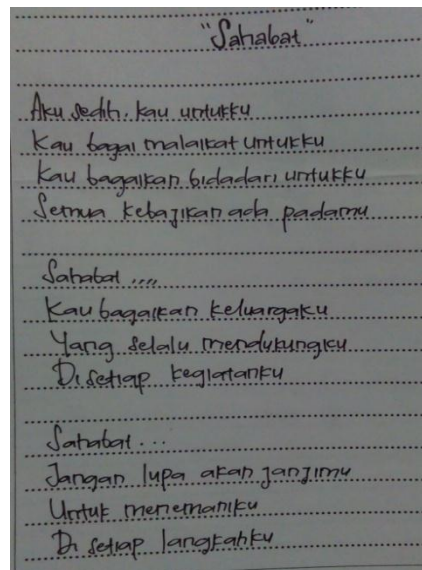 "Sahabat"
Aku sedih. Kau untukku
Kau bagai malaikat untukku
Kau bagaikan bidadari untukku
Semua kebajikan ada padamu
Sahabat ,,,,
Kau bagaikan keluargaku
Yang selalu mendukungku
Di setiap kegiatanku
Sahabat...
Jangan lupa akan janjimu
Untuk menemaniku
Di setiap langkahku